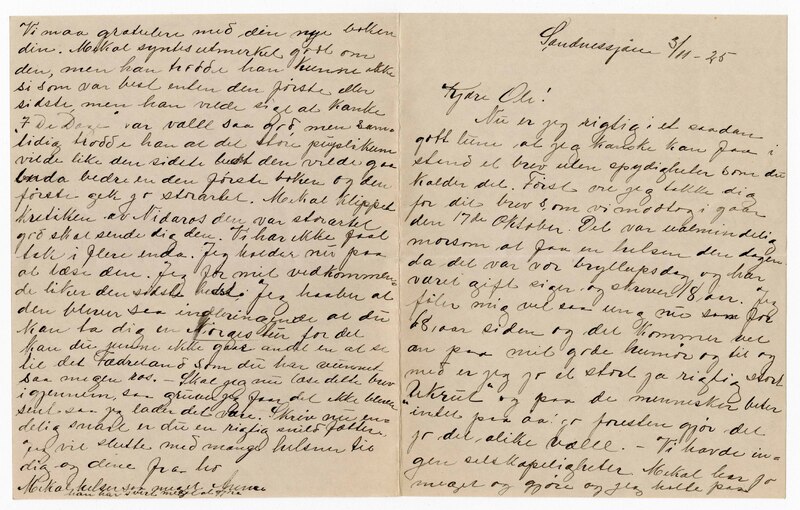 Sandnessjøen 3/11-25
Kjære Ole!
Nu er jeg rigtig i et saadan
godt lune at jeg kanske kan faa i
stand et brev uten spydigheter som du
kalder det. Først vil jeg takke dig
for dit brev som vi mottog i gaar
den 17de Oktober. Det var ualmindelig
morsomt at faa en hilsen den dagen
da det var vor bryllupsdag og har
været gift siger og skriver 18 aar. Jeg
føler mig vel saa ung nu som for
18 aar siden og det kommer vel
an paa mit gode humør og til og
med er jeg jo et stort ja rigtig stort
Ukrut og paa de mennesker biter
intet paa aa! jo foresten gjør det
jo det alike vell. — Vi havde in-
gen selskapeligheter Mekal har jo
meget og gjøre og jeg holte paa
Vi maa gratulere med din nye boken
din. Mekal syntes utmerket godt om
den, men han trodde han kunne ikke
si som var best enten den første eller
sidste, men han vilde sige at kanke
"De Dage" var vell saa god, men sam-
tidig trodde han at det store puplikum
vilde like den sidste best den vilde gaa
enda bedre en den første boken og den
første gik jo storartet. Mekal klippet
kretiken av Nidaros den var storartet
god skal sende dig den. Vi har ikke faat
tak i flere enda. Jeg holder nu paa
at læse den. Jeg for mit vedkommen-
de liker den sidste best. Jeg haaber at
den blever saa indbringende at du
kan ta dig en Norgestur for det
kan du jenne ikke gaar andet en at se
til det Fædreland som du har vunnet
saa megen ros. — Skal jeg nu læse dette brev
igjennem, saa gruer jeg faar det ikke blever
sent saa jeg lader det være. Skrive nu en-
delig snart er du en rigtig snild fætter.
Jeg vil slutte med mange hilsner til
dig og dine fra os
Mekal hilser saa meget Anna
han har svert meget at gjøre